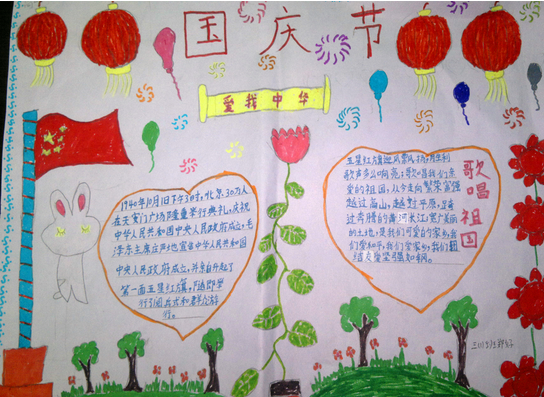 国庆节
爱我中华
1940年10月1日下午3时，北京30万人
在天安门广场隆重举行典礼，庆祝
中华人民共和国中央人民政府成立。毛
泽东主席庄严地宣告中华人民共和国
中央人民政府成立，并亲自升起了
第一面五星红旗。随即举
行阅兵式和群众游
行。
歌唱祖国
五星红旗迎风飘扬，胜利
歌声多么响亮；歌唱我们亲
爱的祖国，从今走向繁荣富强
越过高山，越过平原，
过奔腾的黄河长江；宽广美丽
的土地，是我们可爱的家乡我
们爱和平，我们爱家乡，我们
结友爱坚强如钢。